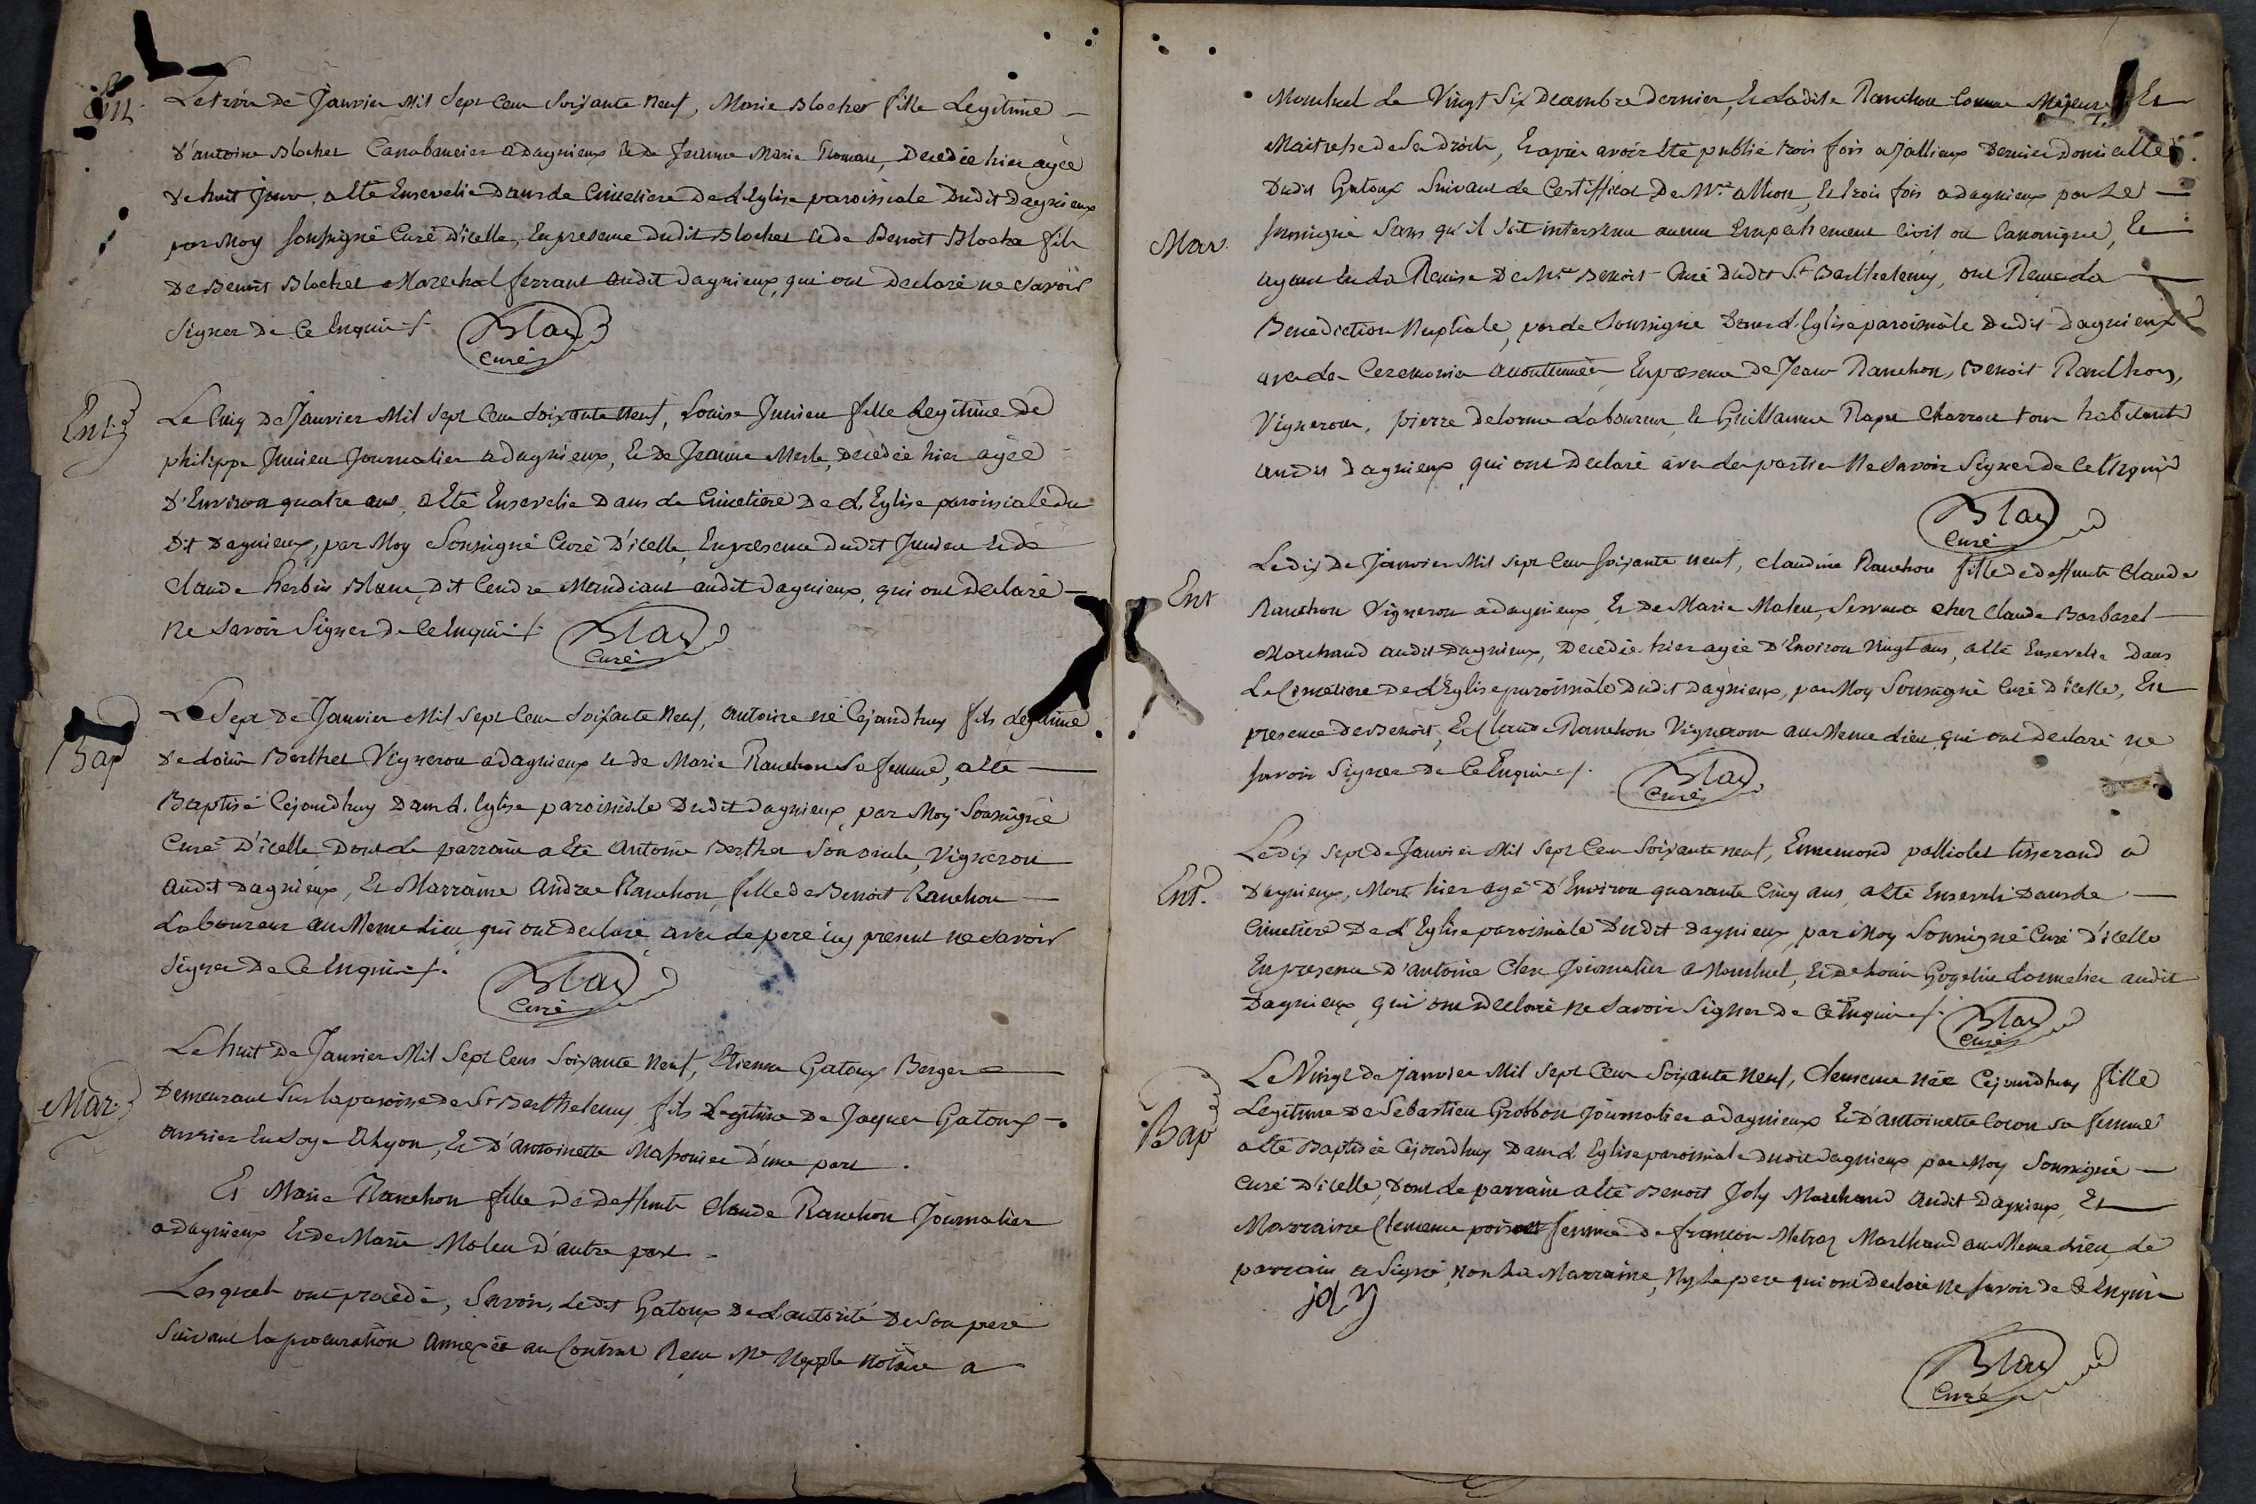 Ent.
Le trois de Janvier Mil Sept Cens Soixante Neuf, Marie Blochet fille Legitime
d'antoine Blochet Cabaretier a dagnieux et de Jeanne Marie Romans, Decedée hier agée
de huit jours, a Eté Ensevelie Dans le Cimetiere De L'Eglise paroissiale Dudit Dagnieux
par Moy soussigné Curé D'icelle, En presence Dudit Blochet et de Benoit Blochet fils
De Benoit Blochet Marechal ferrant audit Dagnieux, qui ont Declaré ne savoir
signer De Ce Enquis
Blay
Curé
Ent.
Le Cinq de Janvier Mil Sept Cens Soixante Neuf, Louise Junieu fille Legitime de
philippe Junieu Journalier a dagnieux, Et De Jeanne Merle, Decedée hier agée
D'Environ quatre ans, a Eté Ensevelie Dans le Cimetiere De L'Eglise paroissiale du
Dit Dagnieux, par Moy Soussigné Curé D'icelle, En presence dudit Junieu et de
Claude herbin Blanc, Dit Cendre Mandiant audit Dagnieux, qui ont Declaré
Ne Savoir Signer de Ce Enquis
Blay
Curé
Bap
Le Sept De Janvier Mil Sept Cens Soixante Neuf, antoine né Cejourdhuy fils Legitime
De Loüis Berthet Vigneron a dagnieux et de Marie Ranchon Sa femme, a Eté
Baptisé Cejourdhuy Dans L'Eglise paroissiale Dudit Dagnieux, par Moy Soussigné
Curé D'icelle Dont Le parrain a Eté Antoine Berthet Son oncle, Vigneron
audit Dagnieux, Et Marraine Andrée Ranchon, fille de Benoit Ranchon
Laboureur au Meme Lieu, qui ont declaré avec le pere icy present ne Savoir
Signer De Ce Enquis
Blay
Curé
Mar.
Le huit De Janvier Mil Sept Cens Soixante Neuf, Etienne Gatoux Berger
Demeurant Sur la paroisse de St Barthelemy, fils Legitime de Jaques Gatoux
ouvrier En Soye A Lyon, Et D'antoinette Massonier D'une part
Et Marie Ranchon fille De Deffunt Claude Ranchon Journalier
a Dagnieux Et De Marie Moleu D'autre part
Lesquels ont procedé, Savoir, Ledit Gatoux De L'autorité De Son pere
Suivant la procuration annexée au Contrat Reçu Me Nepple notaire a
Montluel Le Vingt Six Decembre Dernier, Et Ladite Ranchon Comme Majeure Et
Maitresse de Ses Droits, Et après avoir Eté publié trois fois a Jallieux Dernier Domicille
Dudit Gatoux Suivant le Certifficat De Mre athon, Et trois fois a dagnieux par Le
Mar.
soussigné Sans qu'il soit intervenu aucun Empechement Civil ou Canonique, Et
ayant Eu La Remise De Mre Benoit Curé Dudit St Barthelemy, ont Reçu La
Benediction Nuptiale, par le Soussigné Dans L'Eglise paroissiale Dudit Dagnieux
avec les Ceremonies accoutumées, En presence De Jean Ranchon, Benoit Ranchon,
Vignerons, pierre delorme Laboureur, et Guillaume Rapet Charron tous habitants
audit Dagnieux, qui ont Declaré avec Les parties Ne Savoir Signer de Ce Enquis
Blay
Curé
Ent
Le dix De Janvier Mil Sept Cens Soixante neuf, Claudine Ranchon fille de deffunt Claude
Ranchon Vigneron a dagnieux, Et De Marie Moleu, Servante chez Claude Barbaret
Marchand audit Dagnieux, Decedée hier agée D'Environ Vingt ans, a Eté Ensevelie Dans
Le Cimetiere De L'Eglise paroissiale Dudit Dagnieux, par Moy Soussigné Curé D'icelle, En
presence De Benoit, Et Claude Ranchon Vignerons au Meme Lieu qui ont Declaré ne
savoir Signer De Ce Enquis
Blay
Curé
Ent.
Le dix sept de Janvier Mil Sept Cens Soixante neuf, Ennemond palliolet tisserand a
Dagnieux, Mort hier agé D'Environ quarante Cinq ans, a Eté Enseveli Dans Le
Cimetiere De L'Eglise paroissiale Dudit Dagnieux, par Moy Soussigné Curé D'icelle
En presence D'antoine Clerc Journalier a Montluel, Et De Loüis Gogelin audit
Dagnieux, qui ont Declaré Ne Savoir Signer De Ce Enquis
Blay
Curé
Bap
Le Vingt De Janvier Mil Sept Cens Soixante Neuf, Clemence née Cejourdhuy fille
Legitime De Sebastien Grobbon Journalier a Dagnieux Et D'antoinette Cocon sa femme
a Eté Baptisée Cejourdhuy Dans L'Eglise paroissiale Dudit Dagnieux par Moy Soussigné
Curé D'icelle, Dont Le parrain a Eté Benoit Joly Marchand audit Dagnieux, Et
Marraine Clemence femme de françois Metraz Marchand au Meme Lieu, Le
parrain a Signé, Non La Marraine, Ny Le pere qui ont Declaré Ne savoir de ce Enquis
joly
Blay
Curé